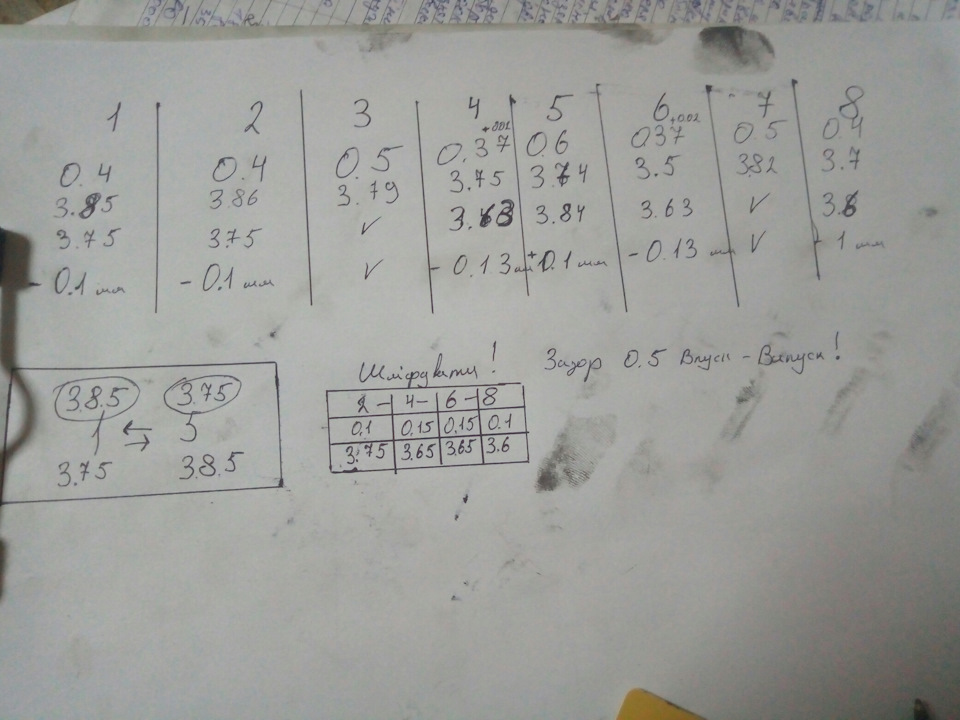 1 2 3 4 5 6 7 8
0.4 0.4 0.5 0.37 +0.02 0.6 0.37 +0.02 0.5 0.4
3.85 3.86 3.79 3.75 3.74 3.5 3.82 3.7
3.75 3.75 ✓ 3.63 3.84 3.63 ✓ 3.6
- 0.1 мм - 0.1 мм ✓ - 0.13 мм +0.1 мм - 0.13 мм ✓ - 1 мм
Шліфувати! Зазор 0.5 Впуск - Випуск!
3.8.5 3.75
1 ← → 5
3.75 3.8.5
2 - 4 - 6 - 8
0.1 0.15 0.15 0.1
3.75 3.65 3.65 3.6